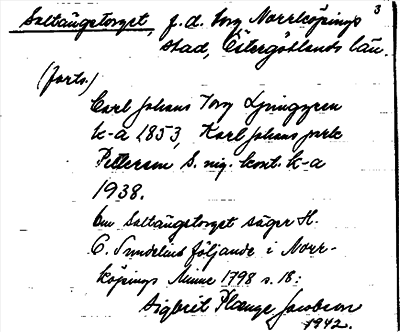 3
Saltängstorget, f.d. torg Norrköpings
stad, Östergötlands län.
(forts.)
Carl Johans Torg Ljunggren
k-a 1853, Karl Johans park
Pettersson S. nig. kont. k-a
1938.
Om Saltängstorget säger H.
O. Sundelius följande i Norr-
köpings Minne 1798 s. 18:
Sigbrit Plænge Jacobson
1942.